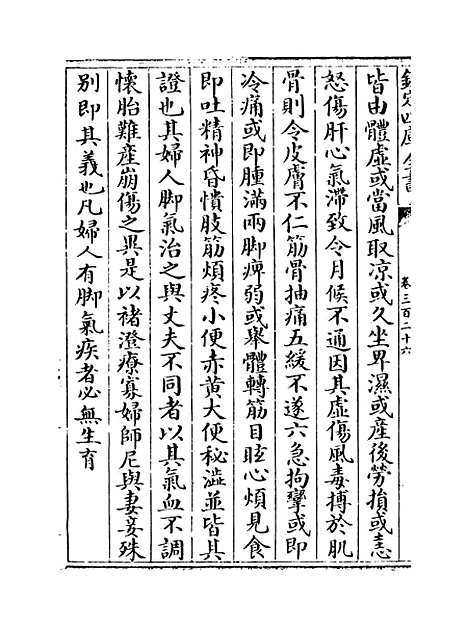 欽定四庫全書
卷三百二十六
皆由體虛或當風取凉或久坐卑濕或産後勞損或恚
怒傷肝心氣滯致令月候不通因其虛傷風毒搏於肌
骨則令皮膚不仁筋骨抽痛五緩不遂六急拘攣或即
冷痛或即腫滿兩脚痺弱或舉體轉筋目眩心煩見食
即吐精神昏憒肢筋煩疼小便赤黄大便秘澁並皆其
證也其婦人脚氣治之與丈夫不同者以其氣血不調
懷胎難産崩傷之異是以褚澄療寡婦師尼與妻妾殊
别即其義也凡婦人有脚氣疾者必無生育